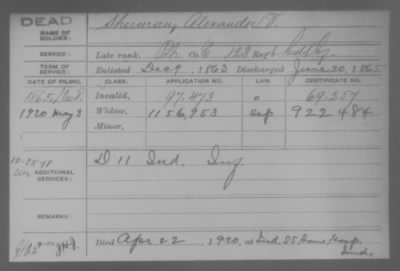 DEAD
NAME OF SOLDIER: Sherman, Alexander
SERVICE: Late rank, Co. 122 Regt
TERM OF SERVICE: Enlisted Dec 9, 1863 Discharged June 20, 1865
DATE OF FILING. CLASS. APPLICATION NO. LAW. CERTIFICATE NO.
1865, Invalid, 97.473 69.257
1920 May 3 Widow, 1156,953 922484
Minor,
10-15-78
ADDITIONAL SERVICES: D 11 Ind. Inf.
REMARKS:
Died Apr 22, 1920, at Ind. SS Home Hosp.
Ind.